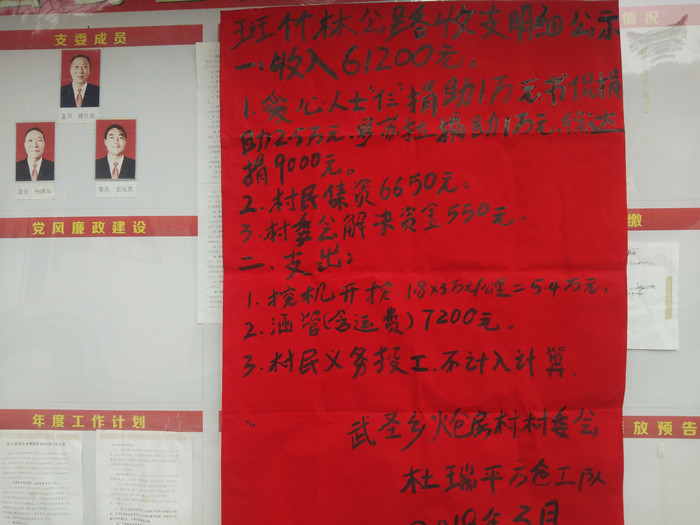 支委成员
党风廉政建设
年度工作计划
情况
缴
放预告
斑竹林公路收支明细公示
一.收入61200元。
1.爱心人士伝捐助1万元书侃捐
助2.5万元.罗苏拉捐助1万元.徐达
捐9000元。
2.村民集资6650元。
3.村委会解决资金550元.
二.支出:
1.挖机开挖 1.8×3万元/公里=5.4万元.
2.涵管(含运费)7200元。
3.村民义务投工.不计入计算.
武圣乡炮房村村委会
杜瑞平方仓工队